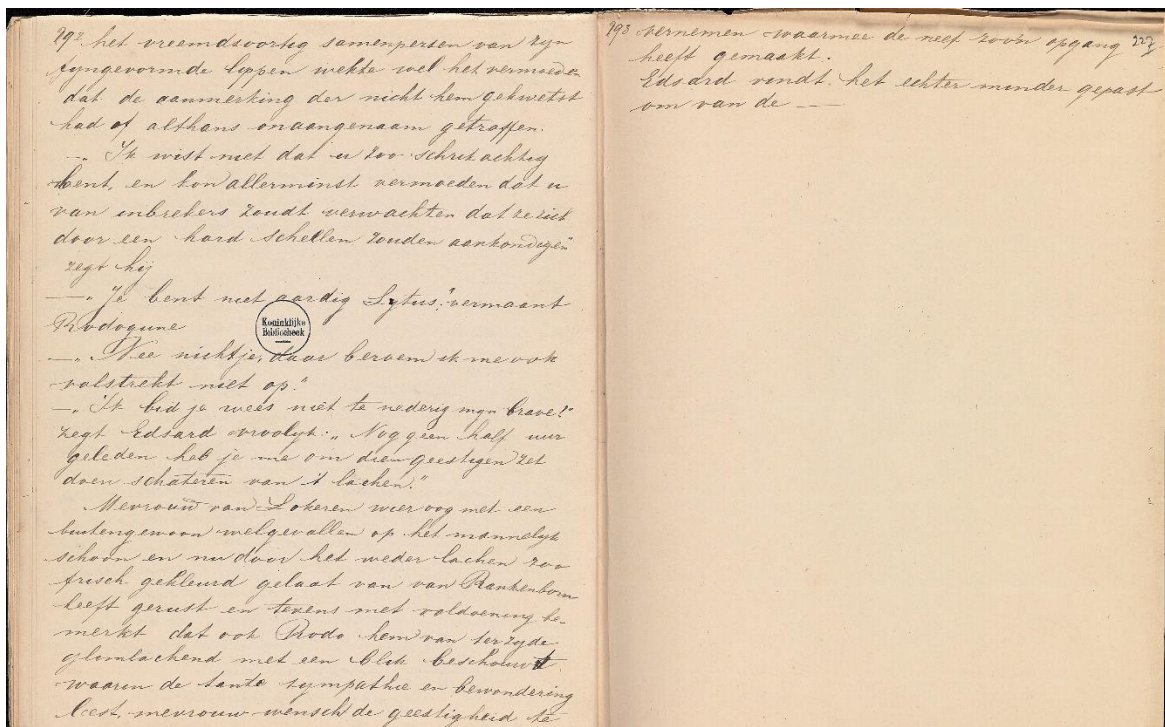 292 het vreemdsoortig samenpersen van zyn
fyngevormde lippen wekte wel het vermoeden
dat de aanmerking der nicht hem gekwetst
had of althans onaangenaam getroffen.
—„ Ik wist niet dat u zoo schrikachtig
bent, en kon allerminst vermoeden dat u
van inbrekers zoudt verwachten dat ze zich
door een hard schellen zouden aankondigen"
zegt hij
—„ Je bent niet aardig Sytus", vermaant
Rodogune
Koninklijke
Bibliotheek
—„ Nee nichtje, daar beroem ik me ook
volstrekt niet op."
—„ Ik bid je wees niet te nederig myn brave!"
zegt Edsard vroolyk: „ Nog geen half uur
geleden heb je me om dien geestigen zet
doen schateren van 't lachen."
Mevrouw van Lokeren wier oog met een
buitengewoon welgevallen op het mannelyk
schoon en nu door het weder lachen zoo
frisch gekleurd gelaat van van Rankenborn
heeft gerust en tevens met voldoening be-
merkt dat ook Rodo hem van terzyde
glimlachend met een blik beschouwt
waarin de tante sympathie en bewondering
leest, mevrouw wensch de geestigheid te
293 vernemen waarmee de neef zoo'n opgang
227
heeft gemaakt.
Edsard vindt het echter minder gepast
om van de ——